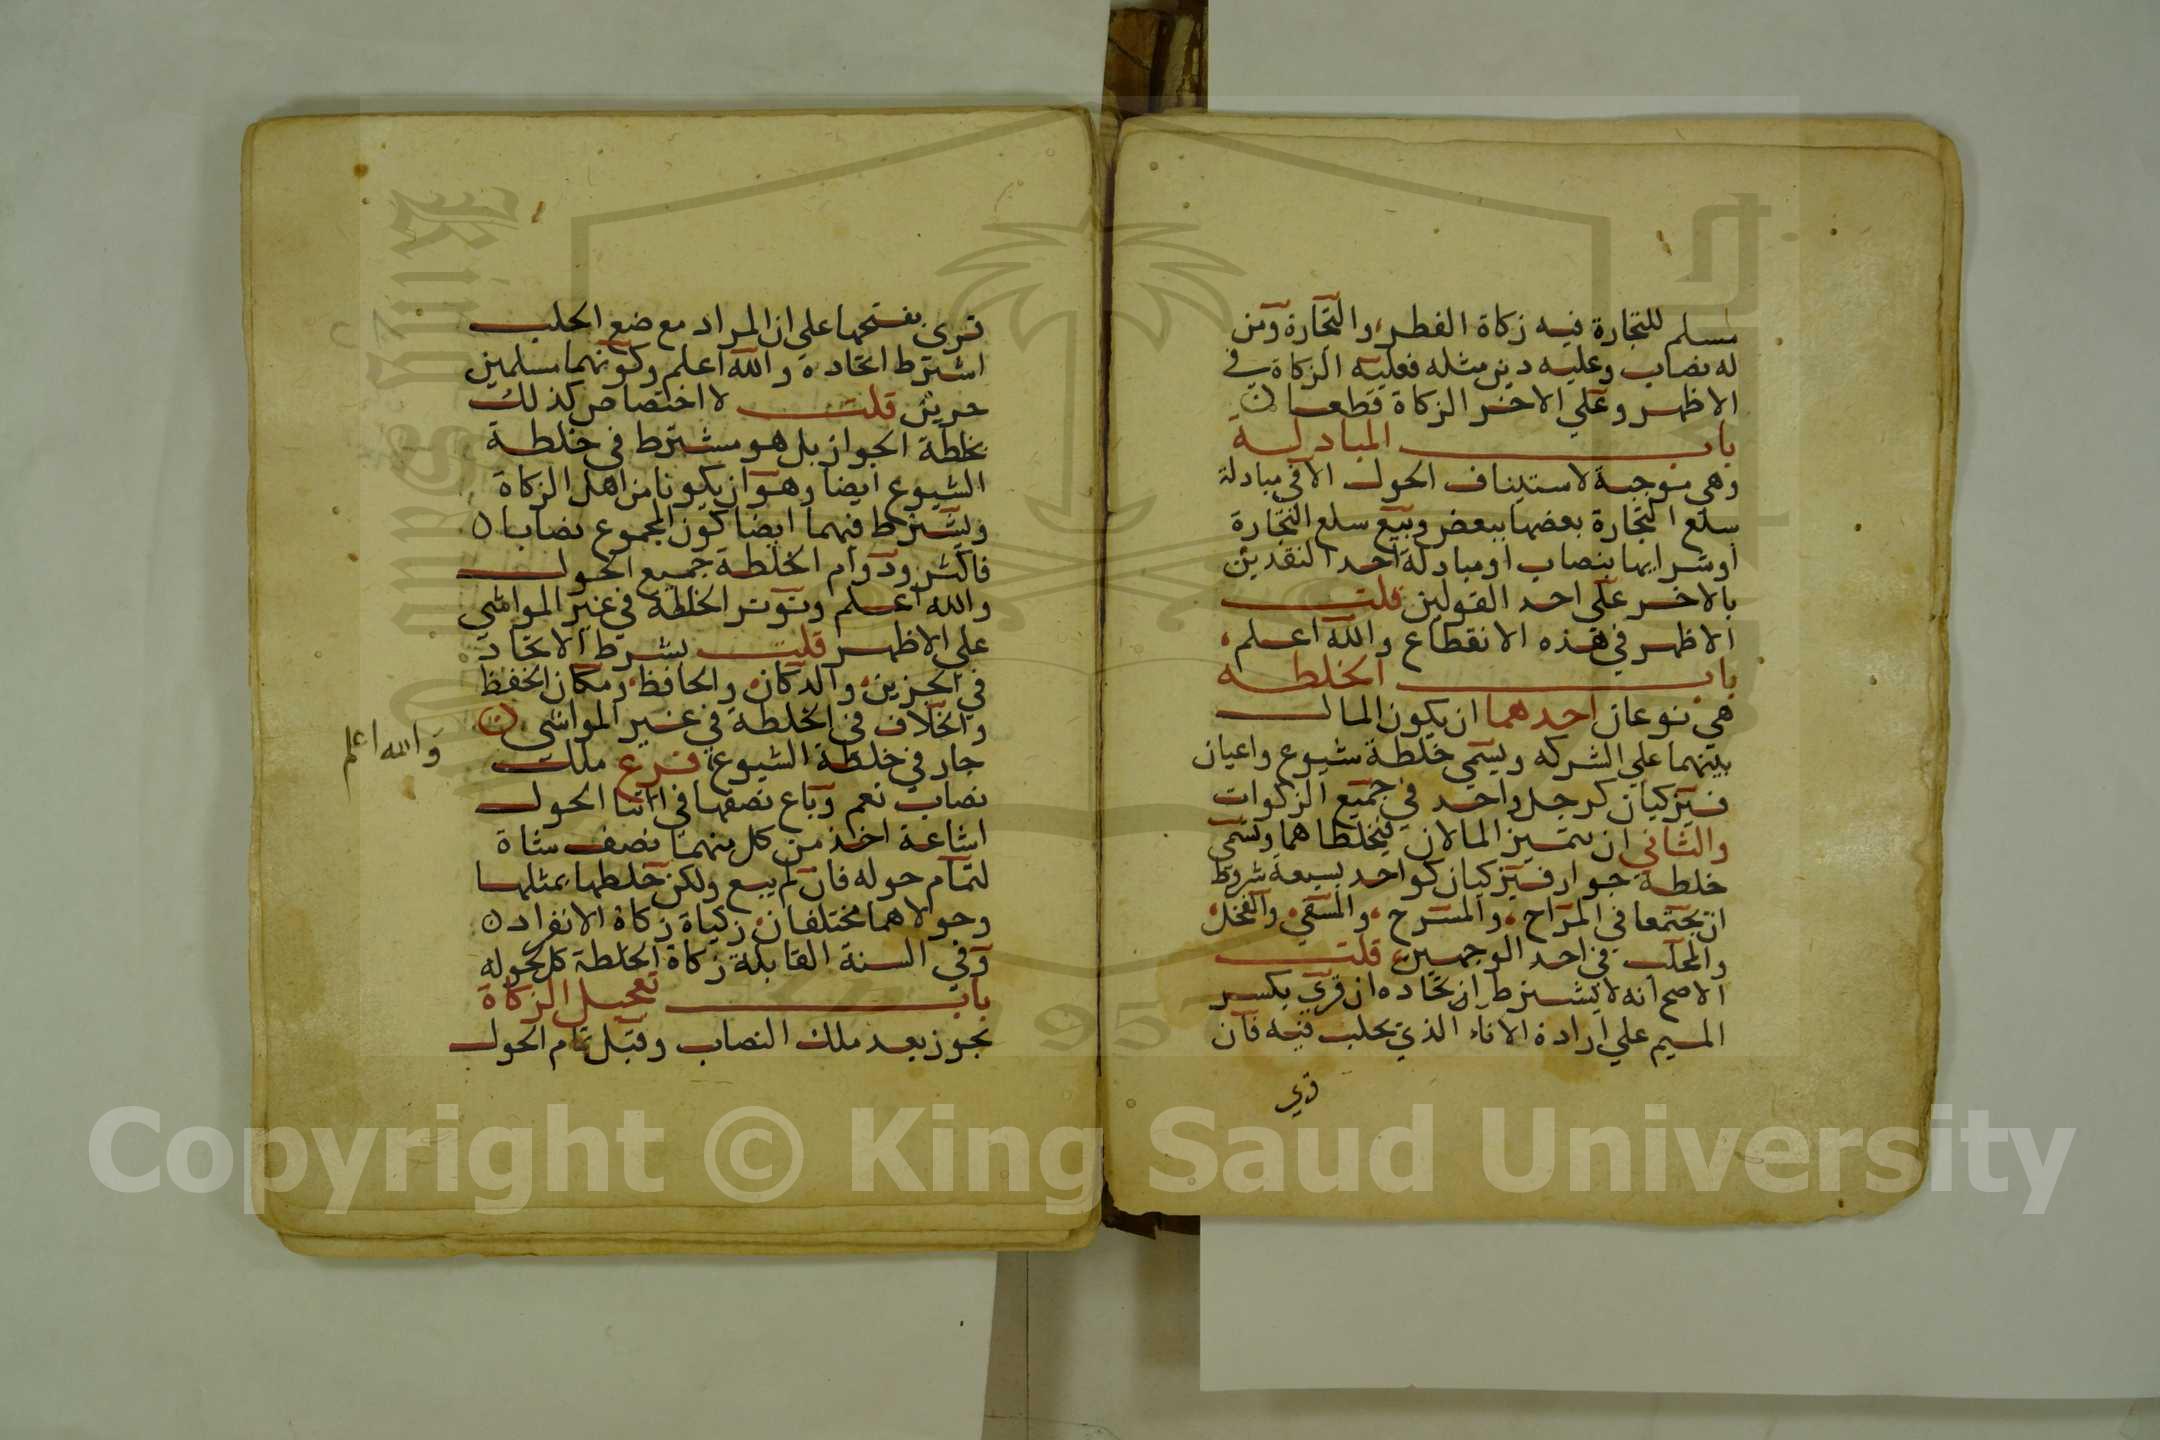 مسلم للتجارة فيه زكاة الفطر، والتجارة ومن
له نصاب وعليه دين مثله فعليه الزكاة في
الاظهر وعلي الاخر الزكاة قطعا ن
باب المبادلة
وهي موجبة لاستيناف الحول الا في مبادلة
سلع التجارة بعضها ببعض وبيع سلع التجارة
او شرايها بنصاب او مبادلة احد النقدين
بالاخر علي احد القولين قلت
الاظهر في هذه الانقطاع والله اعلم،
باب الخلطه
هي نوعان احدهما ان يكون المال
بينهما علي الشركه ويسمي خلطة شيوع واعيان
فيزكيان كرجل واحد في جميع الزكوات
والثاني ان يتميز المالان فيخلطاهما وتسمي
خلطة جوار فيزكيان كواحد بسبعة شروط
ان يجتمعا في المراح، والمسرح، والمسقي، والفحل،
والمحلب في احد الوجهين، قلت
الاصح انه لا يشترط ان تحاده ان قري بكسر
الميم علي ارادة الاناء الذي يحلب فيه فان
قري
قري بفتحها علي ان المراد موضع الحلب
اشترط اتحاده والله اعلم وكونهما مسلمين
حرين قلت لا اختصاص كذلك
بخلطة الجوار بل هو مشترط في خلطة
الشيوع ايضا وهو ان يكونا من اهل الزكاة
ويشترط فيهما ايضا كون المجموع نصابا ن
فاكثر ودوام الخلطة جميع الحول
والله اعلم وتوثر الخلطة في غير المواشي
علي الاظهر قلت بشرط الاتحاد
في الجرين، والدكان، والحافظ، ومكان الحفظ
والخلاف في الخلطة في غير المواشي ن
جار في خلطة الشيوع، فرع ملك
والله اعلم
نصاب نعم وباع نصفها في اثنا الحول
اشاعة اخذ من كل منهما نصف شاة
لتمام حوله فان لم يبع ولكن خلطها بمثلها
وحولاهما مختلفان، زكياة زكاة الانفراد ن
وفي السنة القابلة زكاة الخلطة كل بحوله
باب تعجيل الزكاة
يجوز بعد ملك النصاب وقبل تمام الحول
Copyright © King Saud University
1957